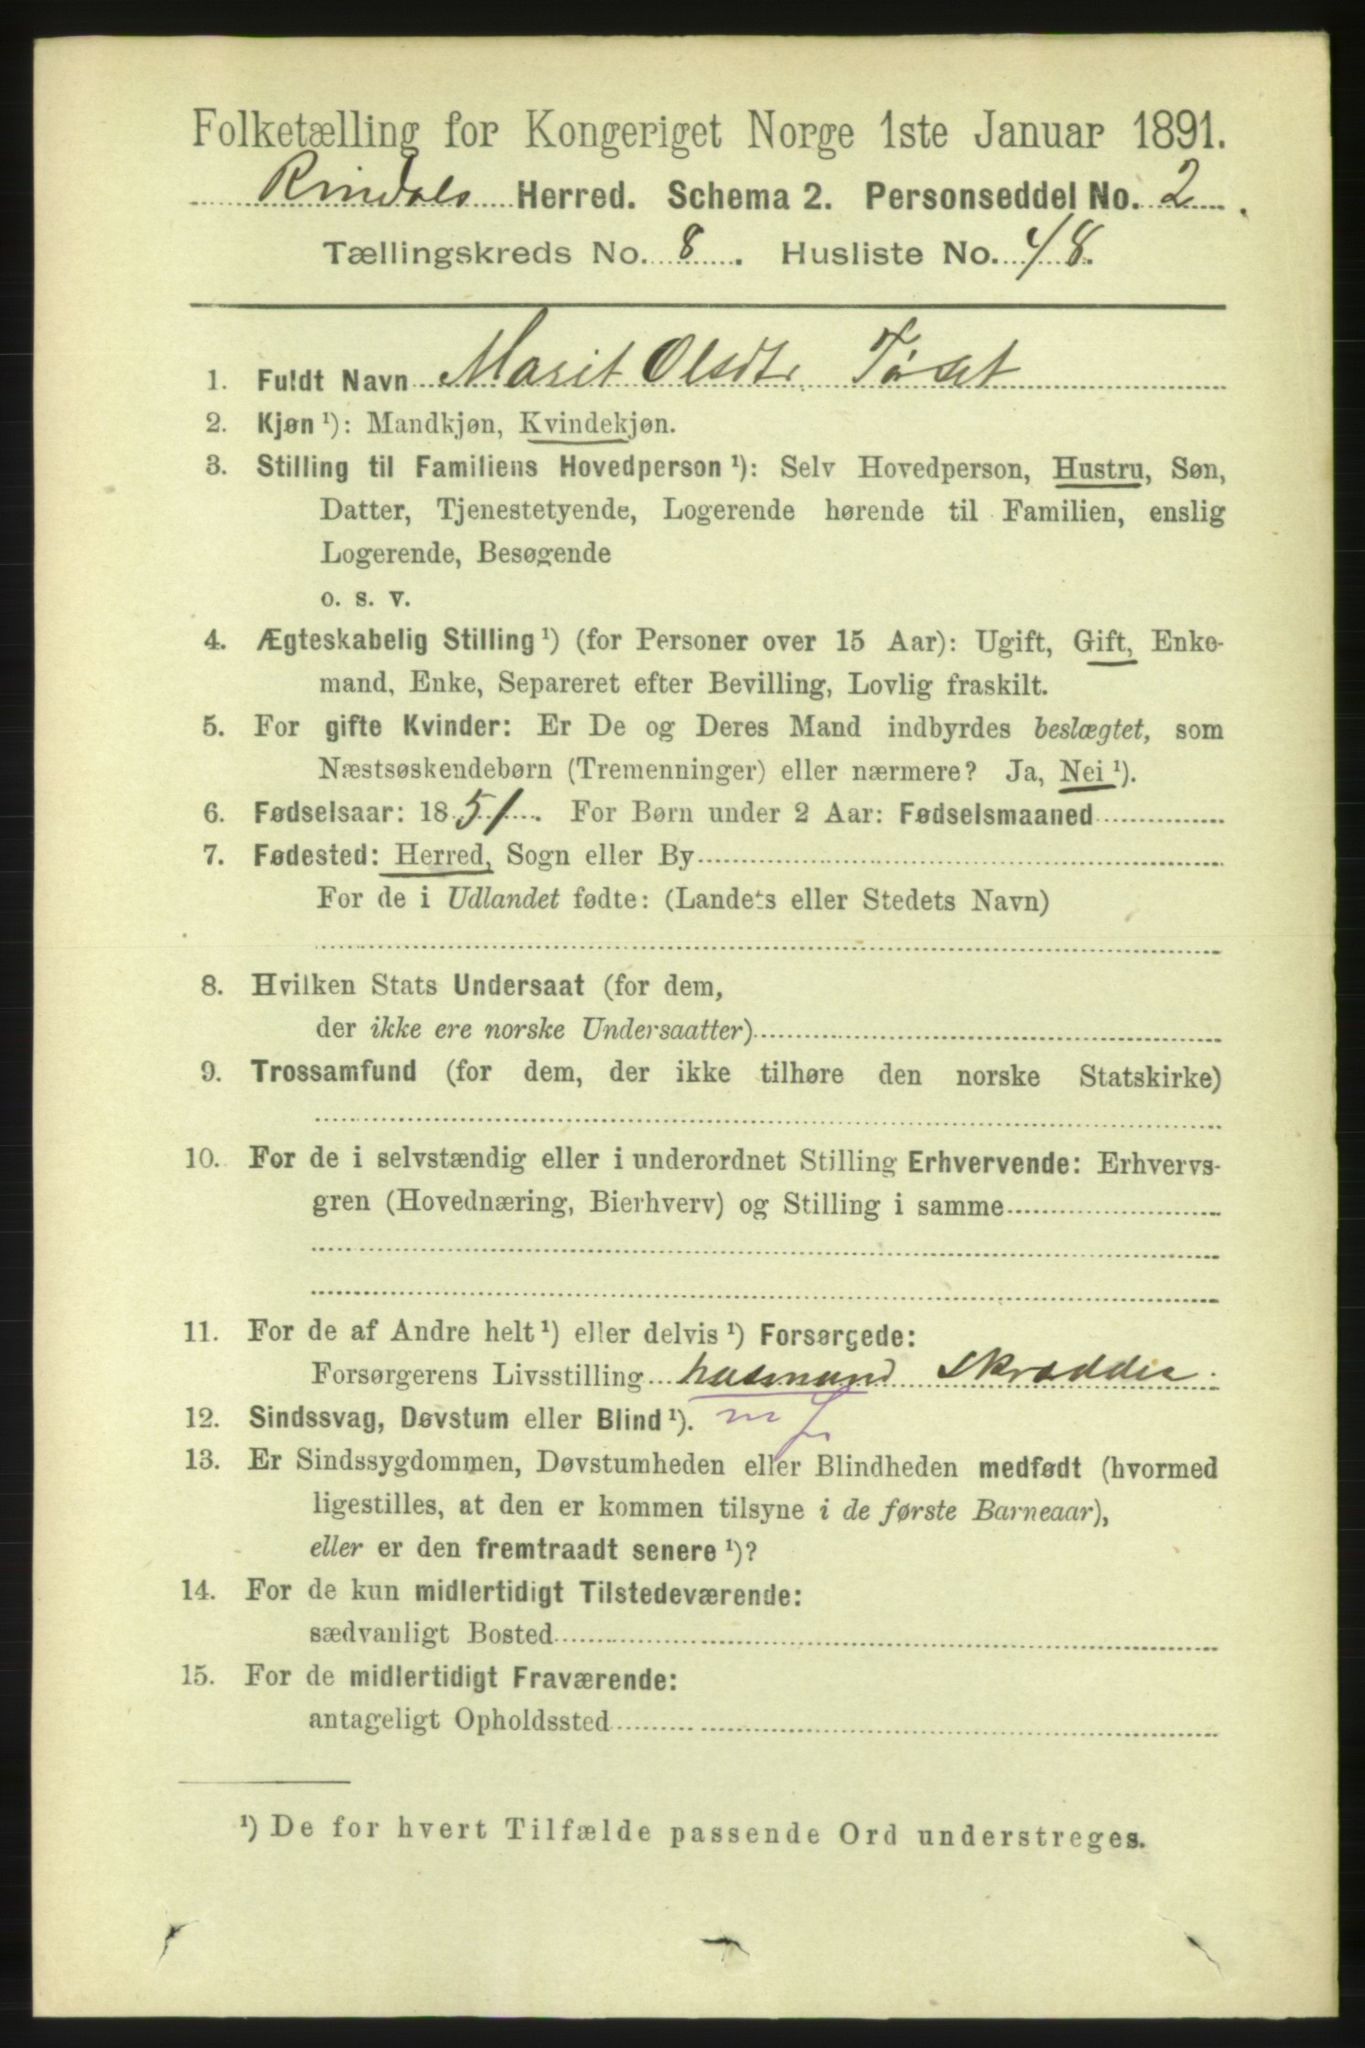 Folketælling for Kongeriget Norge 1ste Januar 1891.
Rindals Herred. Schema 2. Personseddel No. 2
Tællingskreds No. 8. Husliste No. 48.
1. Fuldt Navn Marit Olsdtr. Tøset
2. Kjøn ¹): Mandkjøn, Kvindekjøn.
3. Stilling til Familiens Hovedperson ¹): Selv Hovedperson, Hustru, Søn,
Datter, Tjenestetyende, Logerende hørende til Familien, enslig
Logerende, Besøgende
o. s. v.
4. Ægteskabelig Stilling ¹) (for Personer over 15 Aar): Ugift, Gift, Enke-
mand, Enke, Separeret efter Bevilling, Lovlig fraskilt.
5. For gifte Kvinder: Er De og Deres Mand indbyrdes beslægtet, som
Næstsøskendebørn (Tremenninger) eller nærmere? Ja, Nei ¹).
6. Fødselsaar: 1851. For Børn under 2 Aar: Fødselsmaaned
7. Fødested: Herred, Sogn eller By
For de i Udlandet fødte: (Landets eller Stedets Navn)
8. Hvilken Stats Undersaat (for dem,
der ikke ere norske Undersaatter)
9. Trossamfund (for dem, der ikke tilhøre den norske Statskirke)
10. For de i selvstændig eller i underordnet Stilling Erhvervende: Erhvervs-
gren (Hovednæring, Bierhverv) og Stilling i samme
11. For de af Andre helt ¹) eller delvis ¹) Forsørgede:
Forsørgerens Livsstilling husmand skrædder
12. Sindssvag, Døvstum eller Blind ¹).
13. Er Sindssygdommen, Døvstumheden eller Blindheden medfødt (hvormed
ligestilles, at den er kommen tilsyne i de første Barneaar),
eller er den fremtraadt senere ¹)?
14. For de kun midlertidigt Tilstedeværende:
sædvanligt Bosted
15. For de midlertidigt Fraværende:
antageligt Opholdssted
¹) De for hvert Tilfælde passende Ord understreges.